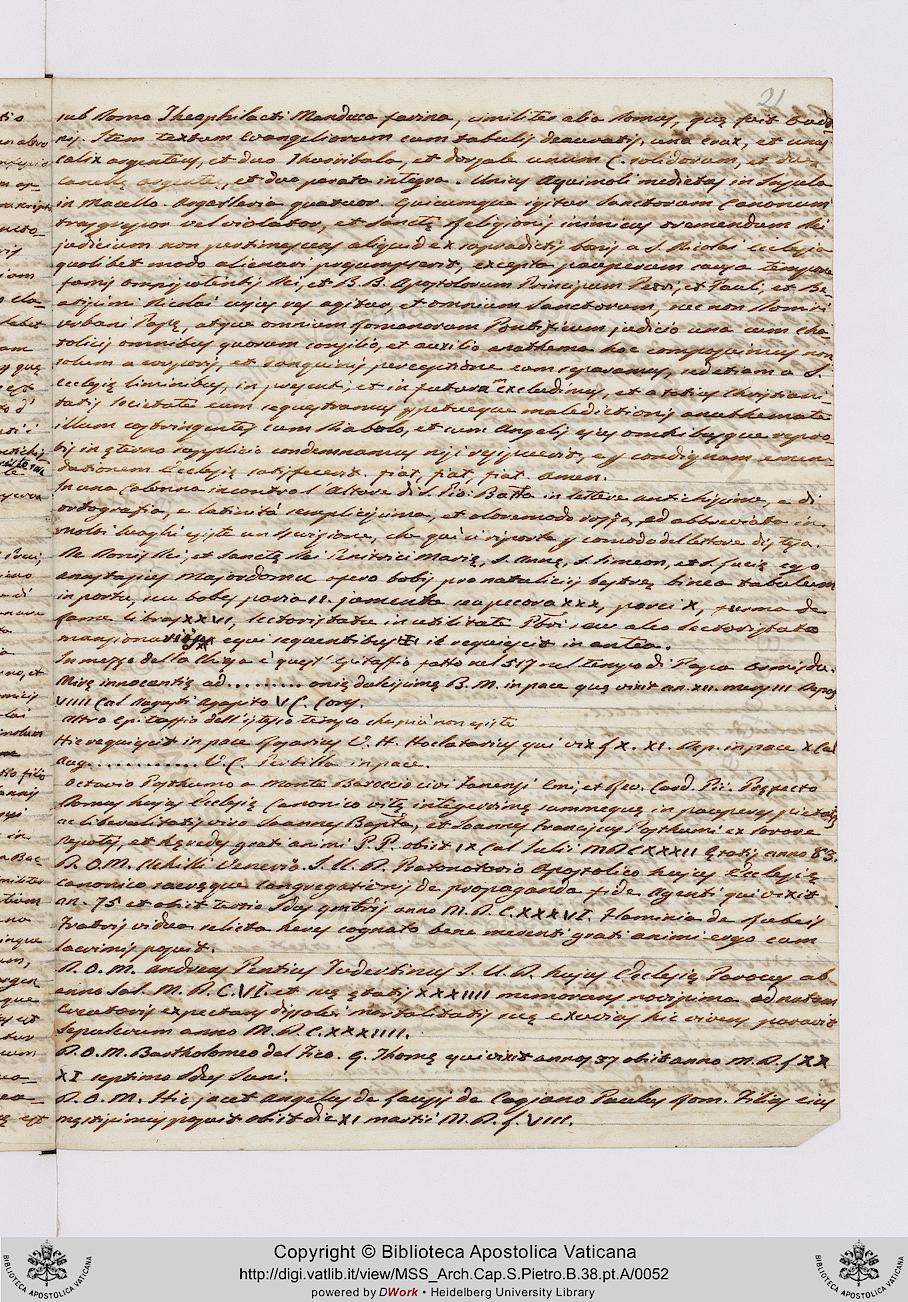 21
sub Domo Theophilacti Manduca farina, similiter alia Domus, quę fuit
rij. Item textum Evangeliorum cum tabulis deauratis, una crux, et unus
calix argenteus, et duo Thuribula, et dorsale unum C. solidorum, et duę
et duo parata integra. Unius Aquimoli medietas in
in Macello. quatuor. Quicumque igitur Sanctorum Canonum
trasgressor vel violator, et Sanctę Religionis inimicus tremendum Dei
judicium non pertimescens aliquid ex supradictis bonis a S. Nicolai Ecclesia
quolibet modo alienari presumpserit, excepta pauperum causa tempore
famis omnipotentis Dei, et B.B. Apostolorum Principum Petri, et Pauli, et Be-
atissimi Nicolai cujus res agitur, et omnium Sanctorum, nec non Domini
Urbani Papę, atque omnium Romanorum Pontificum judicio una cum cha
tolicis omnibus quorum consilio, et auxilio anathema hoc composuimus non
solum a corporis, et Sanguinis perceptione eum separamus, sed etiam a S.
Ecclesię liminibus, in presenti, et in futurum excludimus, et a totius Christiani-
tatis societate eum sequestramus perpetuęque maledictionis anathemate
illum constringentes cum Diabolo, et cum Angelis ejus omnibusque repro
bis in ęterno supplicio condemnamus nisi resipuerit, et condignam emen-
dationem Ecclesię satisfecerit. fiat, fiat, fiat. Amen.
In una Colonna incontro l'Altare di S. Gio: Batta in lettere antichissime, e di
ortografia, e latinità semplicissima, et oltremodo rozza, ed abbreviata in
molti luoghi esiste un Iscrizione, che qui si riporta p comodo del lettore distesa.
De Donis Dei, et Sanctę Dei Genitrici Marię, S. Annę, S. Simeon, et S. Lucię ego
Anastasius Majordomu offero bobis pro natalicii bestrę binea tabularum
in portu, seu bobes paria II. jumenta s pecora XXX, porci X, furma de
rame libras XXVI, lectoristratu in utilitate Pbri seu alio lectoristrato
mansiona equi sequentibus II it requiescit in antea.
In mezzo della Chiesa è quest' Epitaffio fatto nel 517 nel tempo di Papa Ormisda.
Mirę innocentię ad......... onię dulcissimę B.M. in pace quę vixit an. XII. mens III Depos
VIIII Cal Augusti Agapito V C. Cons.
Altro epitaffio dell'istesso tempo che più non esiste
Hic requiescit in pace V. H. qui vix X. XI. Dep. in pace X Cal
Aug............. V.C. in pace.
Octavio Pysthumo a Monte Baroccio civi Fanensi Emi, et Rev. Card. Pręfecto
Domus hujus Ecclesię Canonico vitę integerrimę summęque in pauperes pietatis
ac liberalitatis viro Joannes Bapta, et Joannes Franciscus Pysthumi ex sorore
nepotes, et hęredes grati animi P.P. obiit IX Cal Julii M D C XXXII Ętatis anno 83.
D.O.M. Achilli Venerio J.U.D. Protonotario Apostolico hujus Ecclesię
Canonico sacręque Congregationis de propaganda fide Agenti qui vixit
an. 75 et obiit tertio Idus 9mbris anno M.D.C.XXXVI. Flaminia de Rubeis
Fratris vidua relicta heres cognato bene merenti grati animi ergo cum
lacrimis posuit.
D.O.M. Andreas Penticus Tudertinus J.U.D. hujus Ecclesię Parocus ab
anno Sal. M.D.C.VI. et suę ętatis XXXIIII memorans novissima ad nutum
Creatoris expectans dissolvi mortalitatis suę exuvias hic vivens paravit
sepulcrum anno M.D.C.XXXIIII.
D.O.M. Bartholomeo del Fico. Q. Thomę qui vixit annos 37 obiit anno M.D.LXX
XI septimo Idus Juni.
D.O.M. Hic jacet Angelus de de Cagiano Paulus Rom. Filius eius
męstissimus posuit obiit die XI martii M.D.L.VIII.
Copyright © Biblioteca Apostolica Vaticana
http://digi.vatlib.it/view/MSS_Arch.Cap.S.Pietro.B.38.pt.A/0052
powered by DWork • Heidelberg University Library
BIBLIOTECA APOSTOLICA VATICANA
BIBLIOTECA APOSTOLICA VATICANA